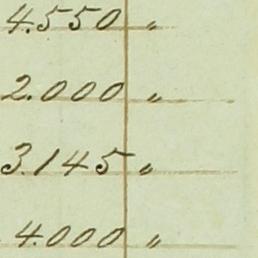 4.550 "
2.000 "
3.145 "
4.000 "